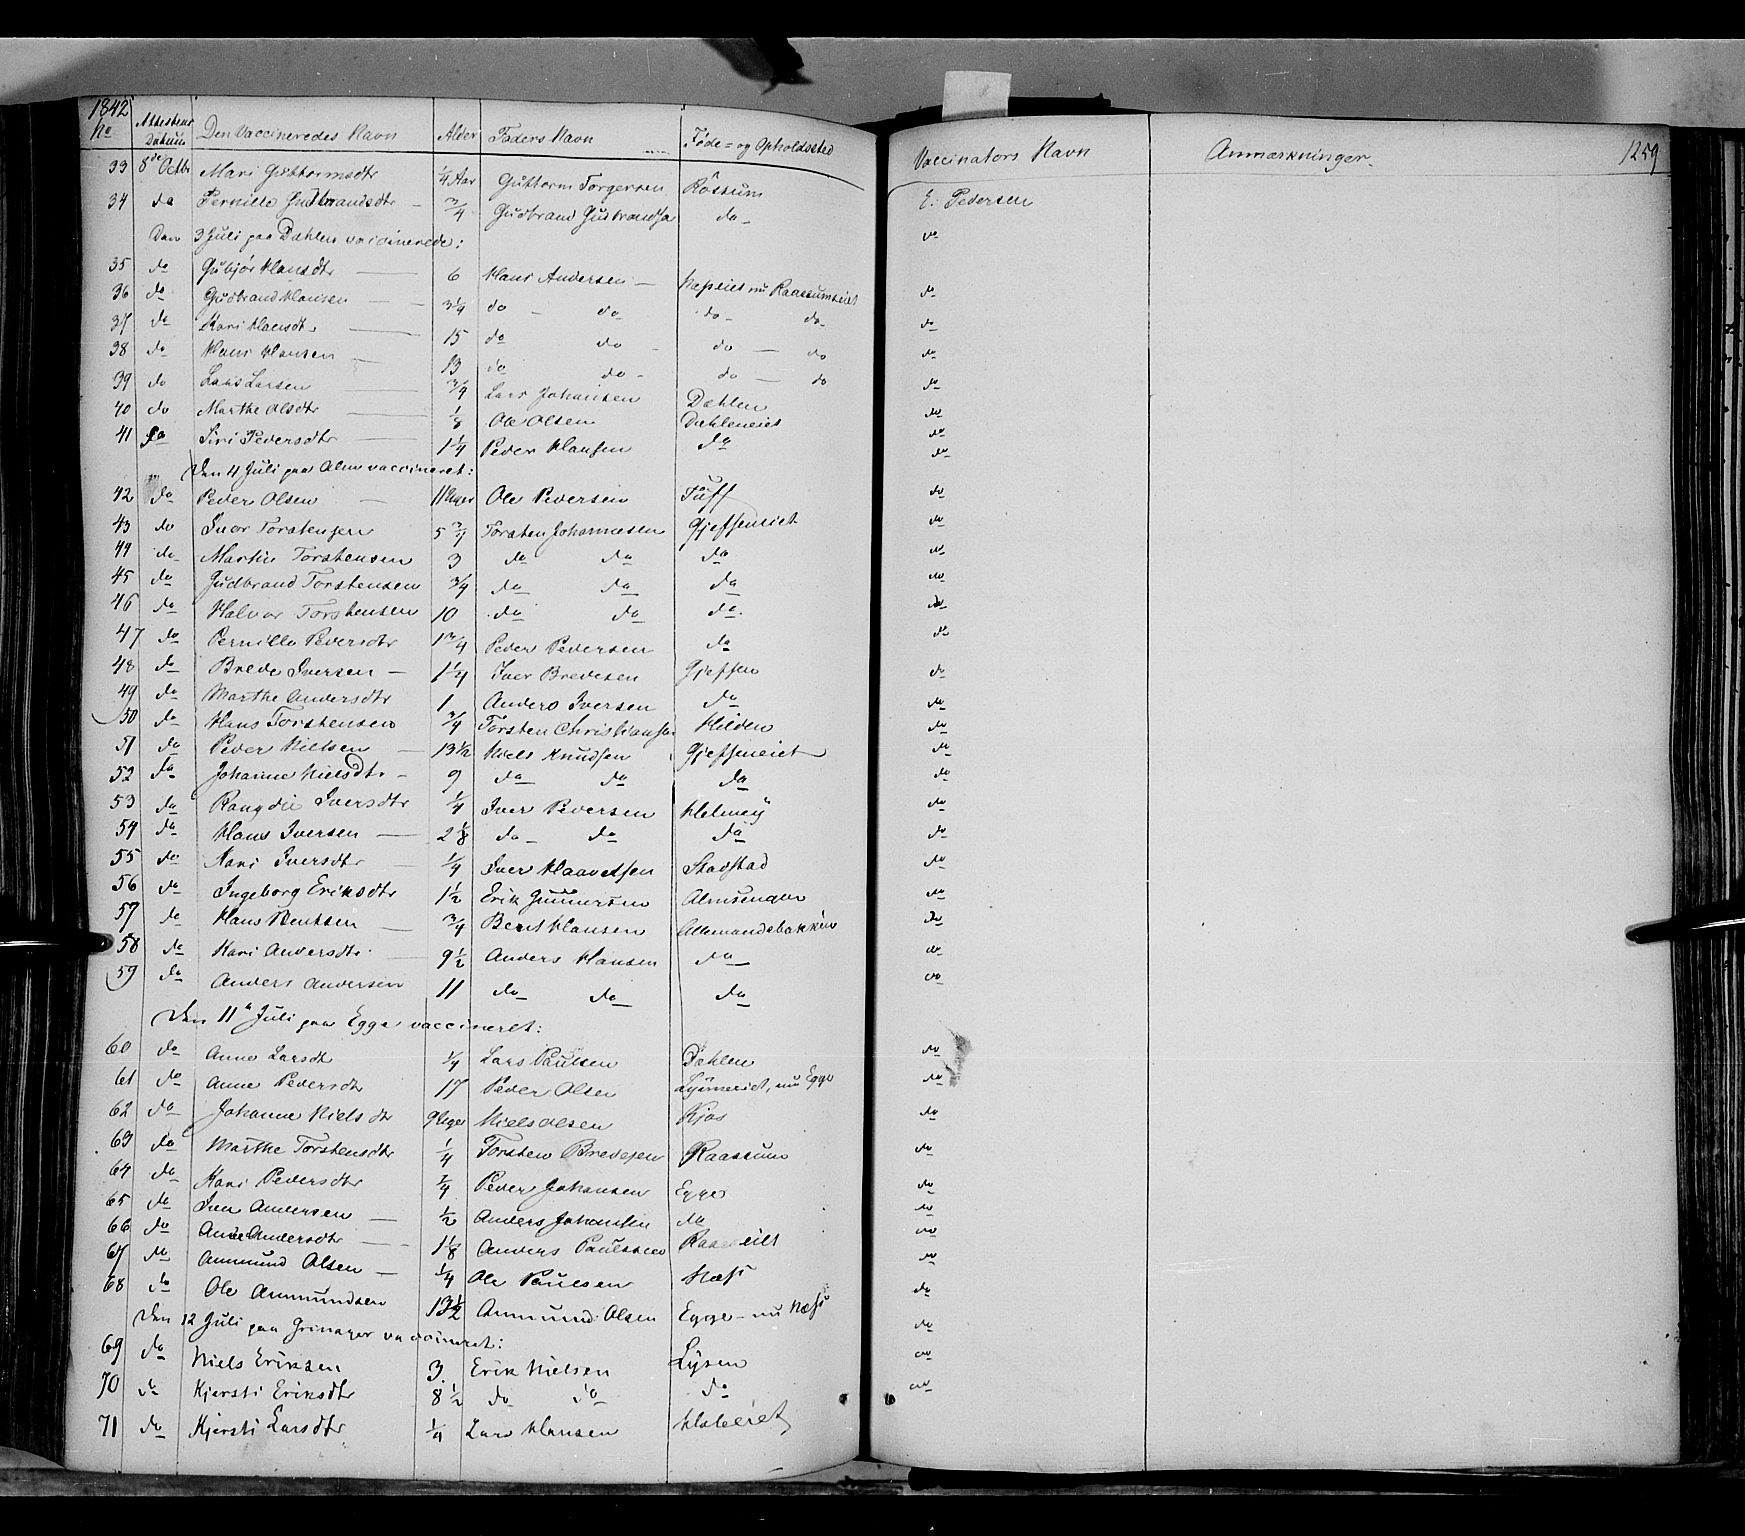 1842
No Attestens Datum Den Vaccineredes Navn Alder Faders Navn Føde= og Opholdssted Vaccinators Navn Anmærkninger. 1259
33 8de Octbr Mari Guttormsdtr 1/4 Aar Guttorm Torgersen Rossum E. Pedersen
34 do Pernille Gudbrandsdtr - 3/4 Gudbrand Gudbrandsen do - do
Den 3 Juli paa Dæhlen vaccinerede:
35 do Gubjør Hansdtr 6 Hans Andersen - Næsseiet nu Raassumseiet do
36 do Gudbrand Hansen 3 1/4 do - do do - do do
37 do Kari Hansdtr 15 do do do - do do
38 do Hans Hansen 13 do do do - do do
39 do Lars Larsen 3/4 Lars Johansen Dæhlen do
40 do Marthe Olsdtr 1/8 Ole Olsen Dæhleneiet do
41 do Siri Pedersdtr 1 1/4 Peder Hansen do do
Den 4 Juli paa Alm vaccineret:
42 do Peder Olsen 11 Uger Ole Pedersen Tuff do
43 do Iver Torstensen 5 3/4 Torsten Johannesen Gjefseneiet do
44 do Martin Torstensen 3 do do do do
45 do Gudbrand Torstensen 3/4 do do do do
46 do Halvor Torstensen 10 do do do do
47 do Pernille Pedersdtr 1 3/4 Peder Pedersen do do
48 do Brede Iversen - 1 1/4 Iver Bredesen Gjefsen do
49 do Marthe Andersdtr 1 Anders Iversen do do
50 do Hans Torstensen 3/4 Torsten Christiansen Hilden do
51 do Peder Nielsen 13 1/2 Niels Knudsen Gjefseneiet do
52 do Johanne Nielsdtr - 9 do do do do
53 do Rangdi Iversdtr 1/4 Iver Pedersen Helmey do
54 do Hans Iversen 2 1/8 do do do do
55 do Kari Iversdtr 1/4 Iver Haavelsen Stadstad do
56 do Ingeborg Eriksdtr 1 1/2 Erik Gunnersen Almsengen do
57 do Hans Bentsen 3/4 Bent Hansen Allemandsbakken do
58 do Kari Andersdtr 9 1/2 Anders Hansen do do
59 do Anders Andersen 11 do do do do
Den 11te Juli paa Egge vaccineret:
60 do Anne Larsdt 1/4 Lars Paulsen Dæhlen do
61 do Anne Pedersdtr 17 Peder Olsen nu Egge do
62 do Johanne Nielsdtr 9 Uger Niels Olsen Kjos do
63 do Marthe Torstensdtr 1/4 Torsten Bredesen Raassum do
64 do Kari Pedersdtr 1/4 Peder Johansen Egge do
65 do Iver Andersen 1/2 Anders Johansen do do
66 do Anne Andersdtr 1 1/8 Anders Paulsen do
67 do Ammund Olsen 1/4 Ole Paulsen Næss do
68 do Ole Ammundsen 13 1/2 Ammund Olsen Egge - nu Næss do
Den 12 Juli paa Grinager vaccineret:
69 do Niels Eriksen 3 Erik Nielsen Lysen do
70 do Kjersti Eriksdtr 8 1/2 do do do do
71 do Kjersti Larsdtr 1/4 Lars Hansen